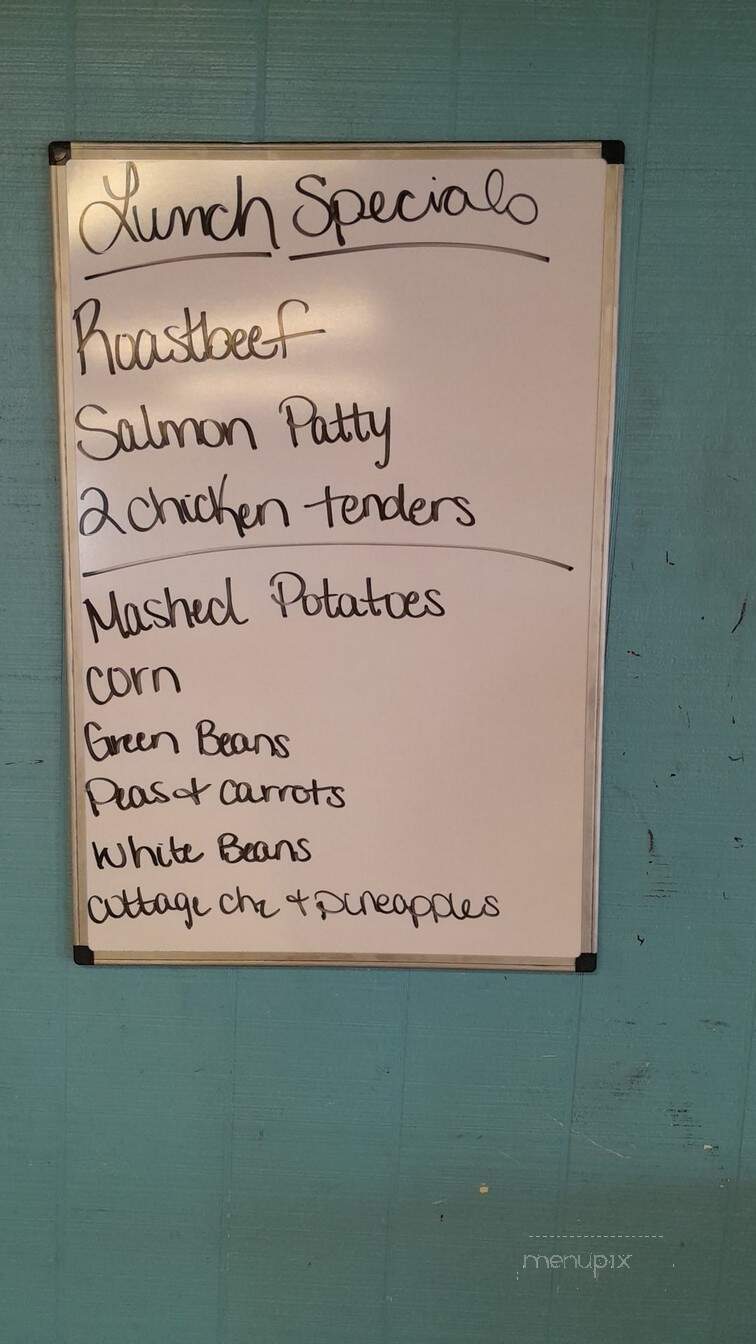 Lunch Specials
Roastbeef
Salmon Patty
2 chicken tenders
Mashed Potatoes
corn
Green Beans
Peas & carrots
White Beans
cottage chz & pineapples
menupix